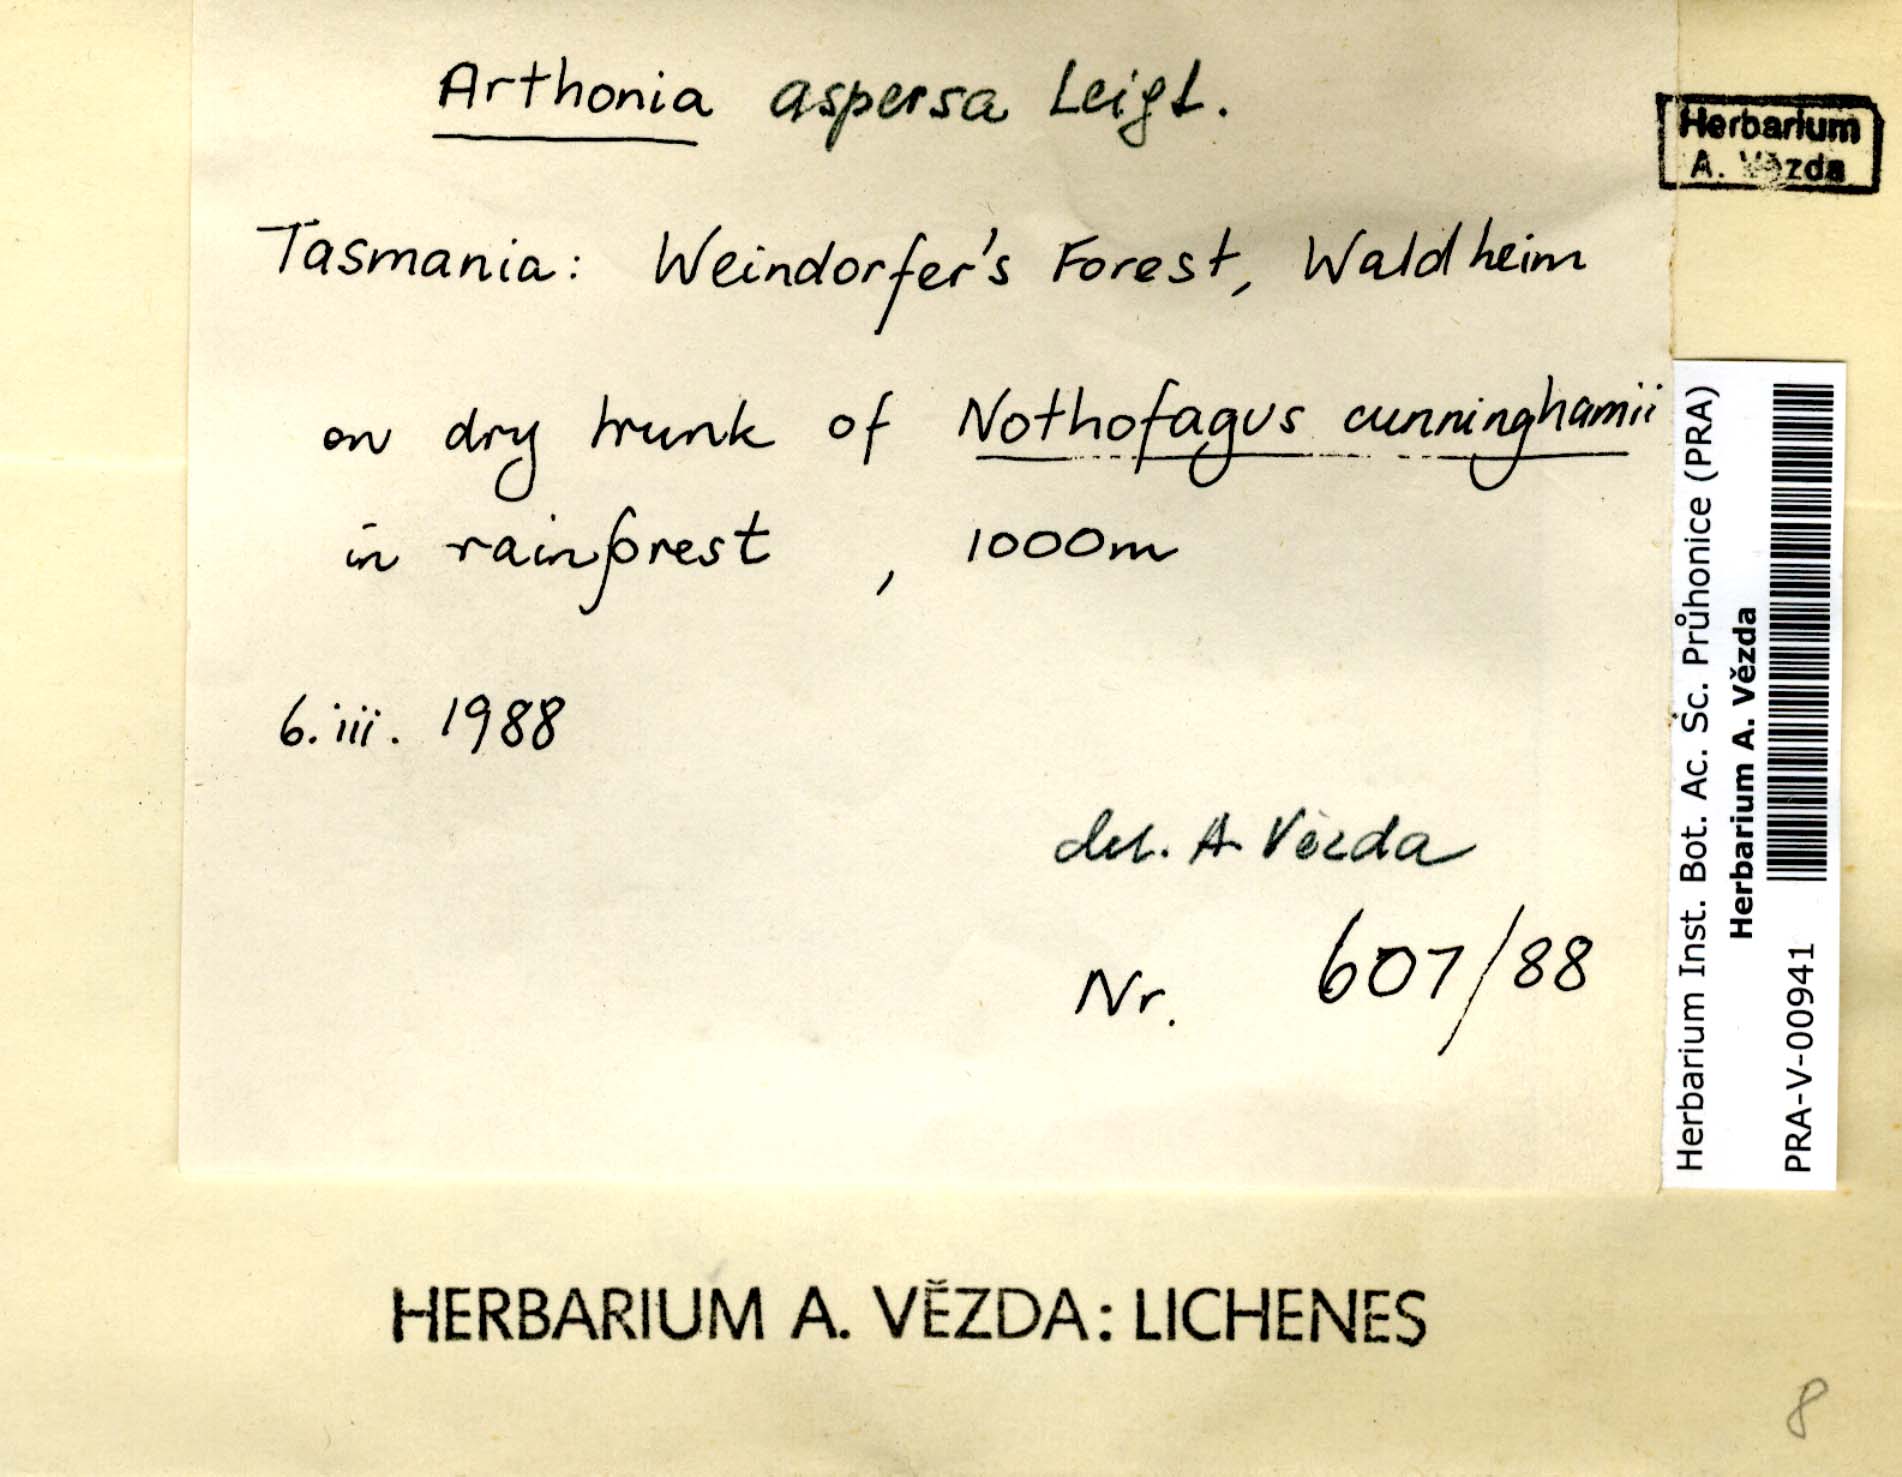 Arthonia aspersa Leigt.
Herbarium
A. Vězda
Tasmania: Weindorfer's Forest, Waldheim
on dry trunk of Nothofagus cunninghamii
in rainforest , 1000m
6. iii. 1988
det. A. Vězda
Nr. 607/88
Herbarium Inst. Bot. Ac. Sc. Průhonice (PRA)
Herbarium A. Vězda
PRA-V-00941
HERBARIUM A. VĚZDA: LICHENES
8